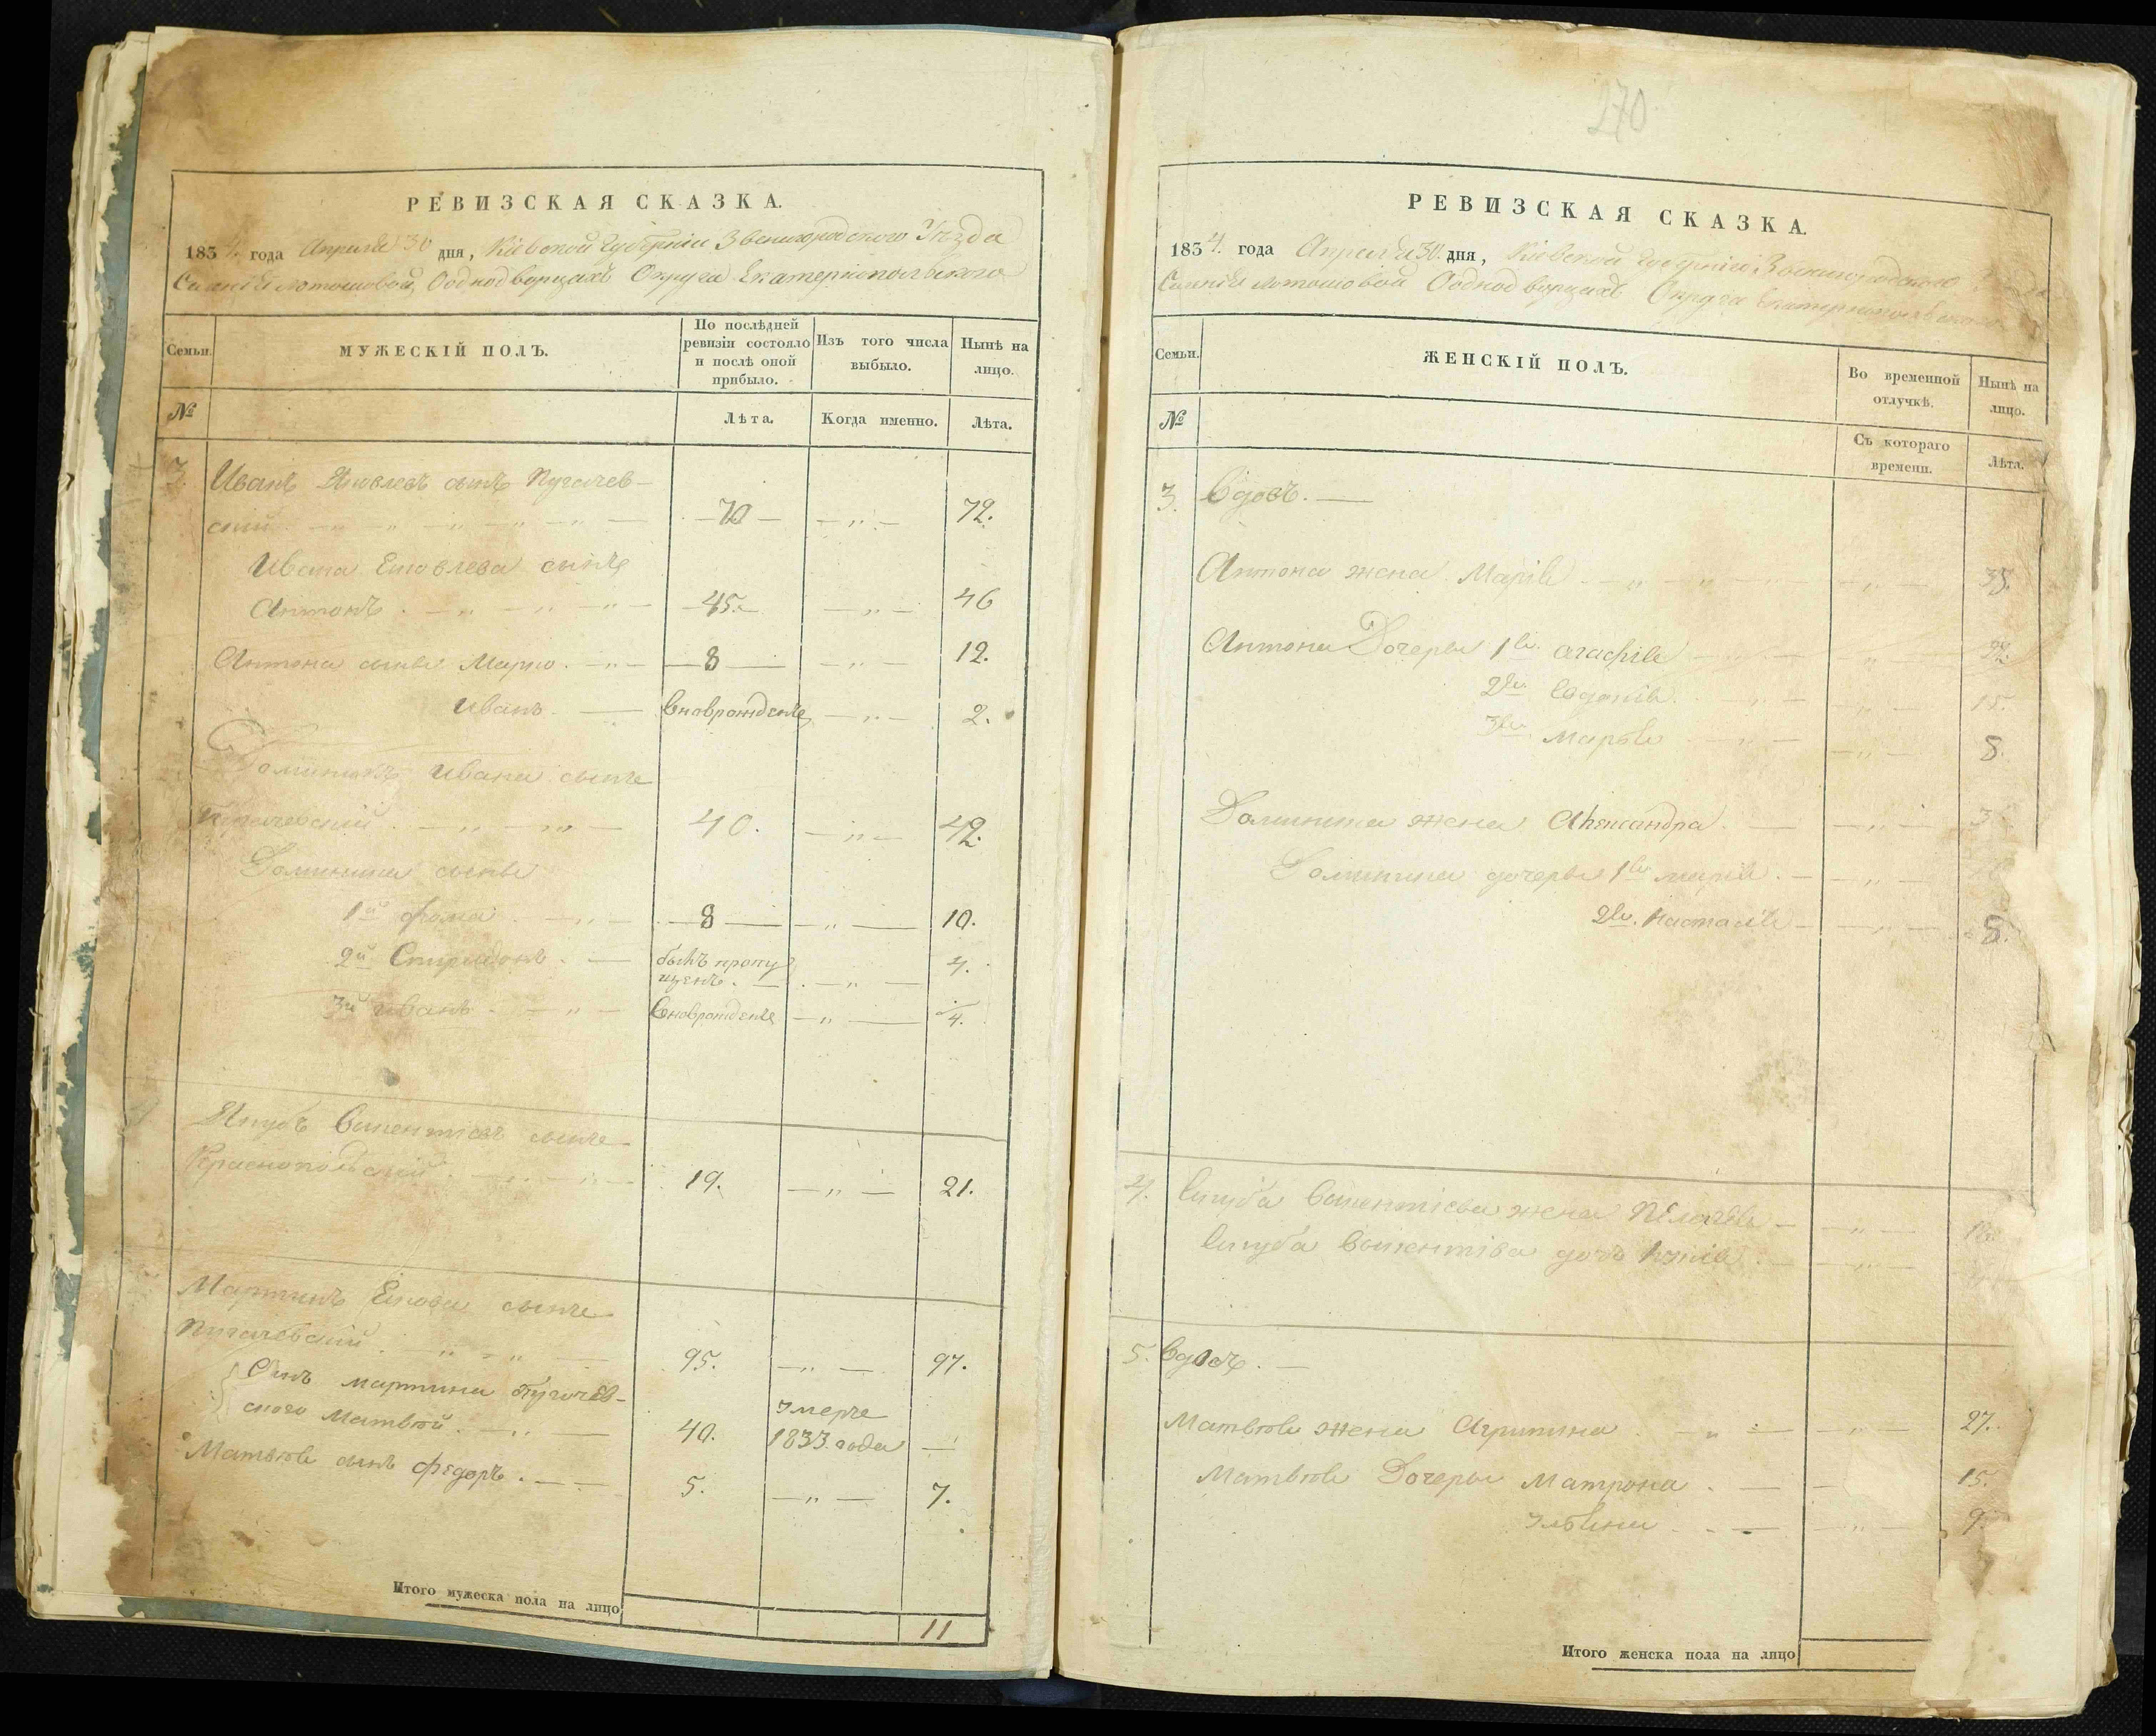 РЕВИЗСКАЯ СКАЗКА.
1834. года Апреля 30 дня, Кіевской Губерніи Звенигородского Уезда
Однодворцахъ Округа Екатеринопольского
Семьи.
МУЖЕСКІЙ ПОЛЪ.
По послѣдней ревизіи состояло и послѣ оной прибыло.
Изъ того числа выбыло.
Нынѣ на лицо.
№
Лѣта.
Когда именно.
Лѣта.
3. Иванъ Яковлевъ сынъ Пугачев-
ский — 70 — „ — 72.
Ивана Яковлева сынъ
Антонъ . — 45. — „ — 46
Антона сыны Марко . — 8 — „ — 12.
Иванъ — вноврожденъ — „ — 2.
Доминикъ Ивана сынъ
Пугачевский . — 40. — „ — 42.
Доминика сыны
1й Фома . — 8 — „ — 10.
2й Спиридонъ . — былъ пропу
щенъ . — „ — 4.
3й Иванъ . — вноврожденъ — „ — 1/4.
Якубъ Викентіевъ сынъ
Краснопольский . — 19. — „ — 21.
Мартинъ Екова сынъ
Пугачевский . — 95. — „ — 97.
Сынъ Мартина Пугачев-
ского Матвѣй . — 40. умеръ 1833. года —
Матвѣя сынъ Федоръ . — 5. — „ — 7.
Итого мужеска пола на лицо
11
270
РЕВИЗСКАЯ СКАЗКА.
1834. года Апреля 30. дня, Кіевской Губерніи Звенигородского
Однодворцахъ Округа Екатеринопольского
Семьи.
ЖЕНСКІЙ ПОЛЪ.
Во временной отлучкѣ.
Нынѣ на лицо.
№
Съ котораго времени.
Лѣта.
3. Вдовъ. —
Антона жена Марія — „ — 35.
Антона Дочеры 1я — „ —
2я Евдокія — „ — 15.
3я Марья — „ — 8.
Доминика жена Александра . — „ —
Доминика дочеры 1я Марія . — „ —
2я. Настасія — „ — 8.
4. Якуба Викентіева жена — „ —
Якуба Викентіва дочь — „ —
5. Вдовъ . —
Матвѣя жена Агрипина . — „ — 27.
Матвѣя Дочеры Матрона . — 15.
Ульяна . — „ — 9.
Итого женска пола на лицо